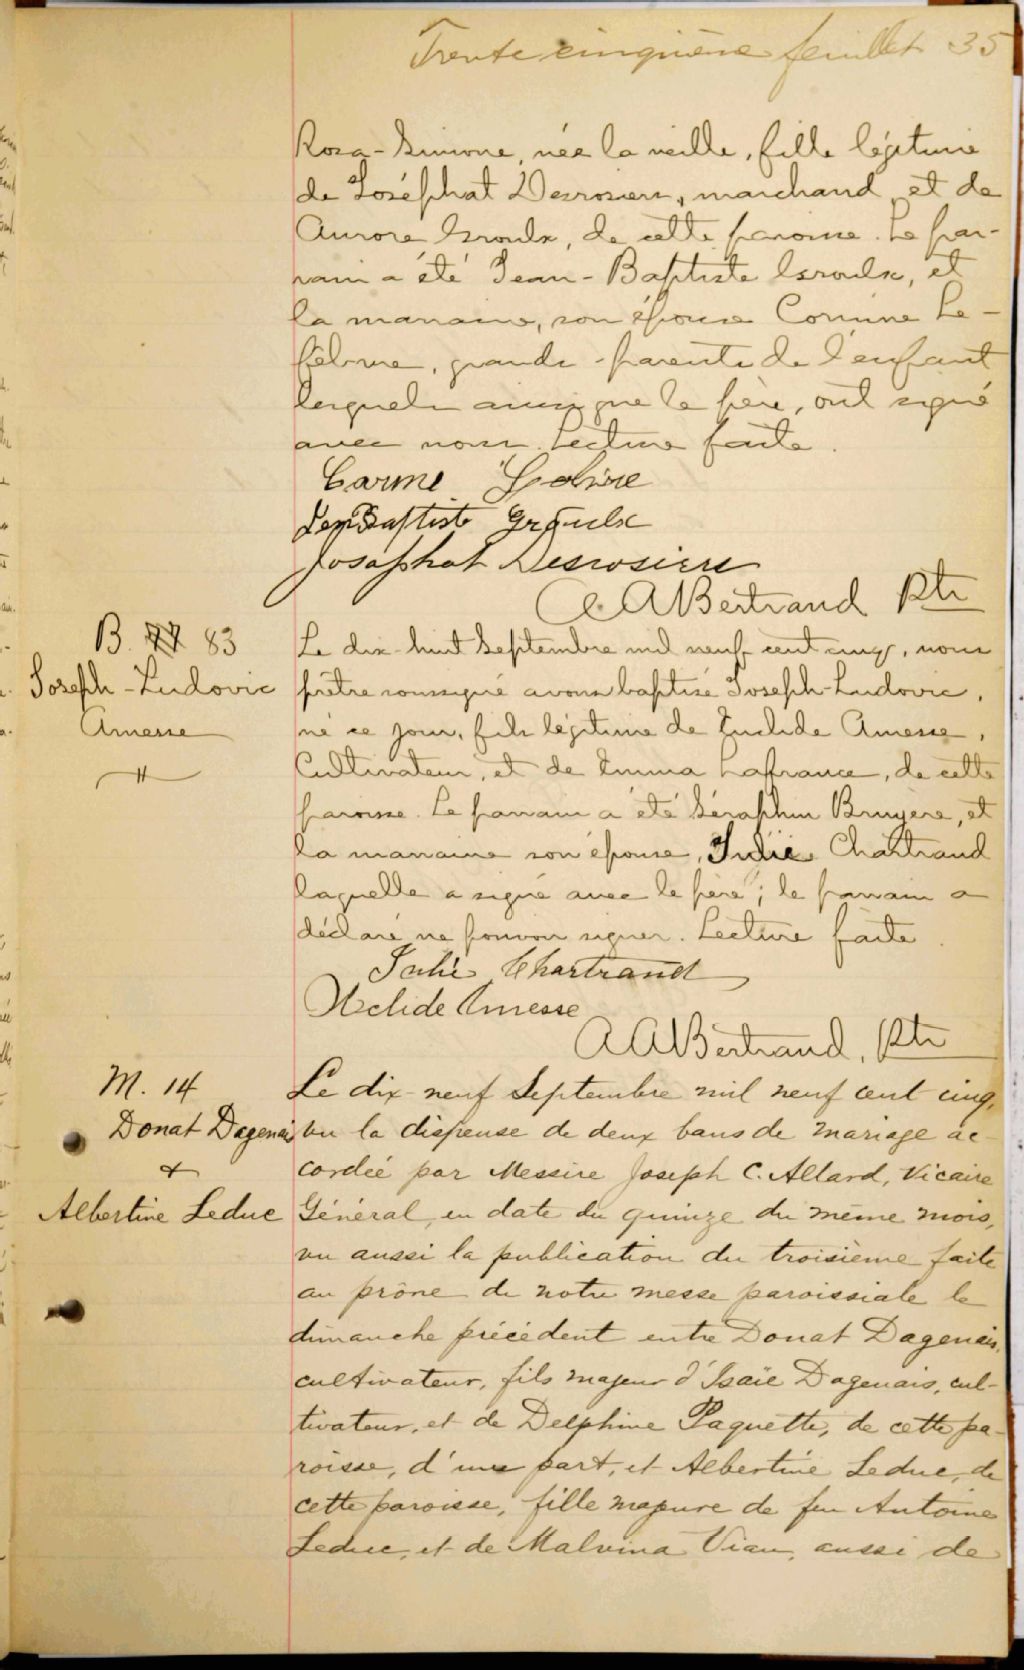 Trente cinquième feuillet 35
Rosa-Simone, née la veille, fille légitime
de Joséphat Desrosiers, marchand, et de
Aurore Groulx, de cette paroisse. Le par-
rain a été Jean-Baptiste Groulx, et
la marraine, son épouse Corinne Le-
febvre, grands-parents de l'enfant
lesquels ainsi que le père, ont signé
avec nous. Lecture faite.
Jean Baptiste Groulx
Josaphat Desrosiers
A. A. Bertrand Ptr
B. 77 83
Joseph-Ludovic
Amesse
Le dix-huit Septembre mil neuf cent cinq, nous
prêtre soussigné avons baptisé Joseph-Ludovic,
né ce jour, fils légitime de Euclide Amesse,
Cultivateur, et de Emma Lafrance, de cette
paroisse. Le parrain a été Séraphin Bruyère, et
la marraine son épouse, Julie Chartrand
laquelle a signé avec le père; le parrain a
déclaré ne pouvoir signer. Lecture faite.
Julie Chartrand
Amesse
A. A. Bertrand, Ptr
M. 14
Donat Dagenais
&
Albertine Leduc
Le dix-neuf Septembre mil neuf cent cinq,
vu la dispense de deux bans de mariage ac-
cordée par Messire Joseph C. Allard, Vicaire
Général, en date du quinze du même mois,
vu aussi la publication du troisième faite
au prône de notre messe paroissiale le
dimanche précédent entre Donat Dagenais,
cultivateur, fils majeur d'Isaïe Dagenais, cul-
tivateur, et de Delphine Paquette, de cette pa-
roisse, d'une part, et Albertine Leduc, de
cette paroisse, fille majeure de feu Antoine
Leduc, et de Malvina Viau, aussi de